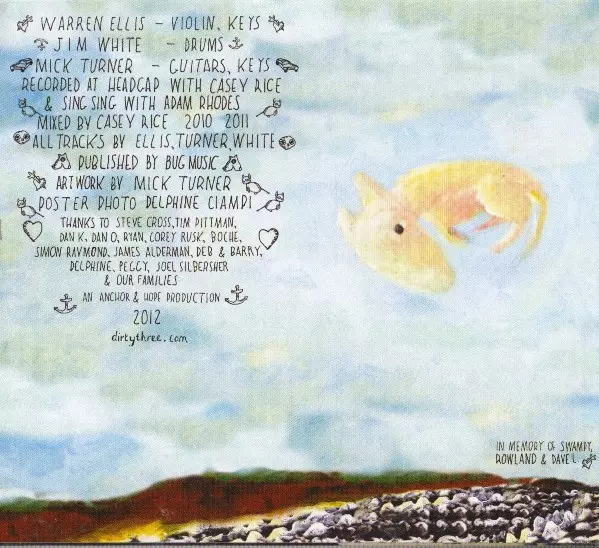 WARREN ELLIS - VIOLIN, KEYS
JIM WHITE - DRUMS
MICK TURNER - GUITARS, KEYS
RECORDED AT HEADGAP WITH CASEY RICE
& SING SING WITH ADAM RHODES
MIXED BY CASEY RICE 2010 2011
ALL TRACKS BY ELLIS, TURNER, WHITE
PUBLISHED BY BUG MUSIC
ARTWORK BY MICK TURNER
POSTER PHOTO DELPHINE CIAMPI
THANKS TO STEVE CROSS, TIM PITTMAN,
DAN K, DAN O, RYAN, COREY RUSK, BOCHE,
SIMON RAYMOND, JAMES ALDERMAN, DEB & BARRY,
DELPHINE, PEGGY, JOEL SILBERSHER
& OUR FAMILIES
AN ANCHOR & HOPE PRODUCTION
2012
dirtythree.com
IN MEMORY OF SWAMPY,
ROWLAND & DAVE L.